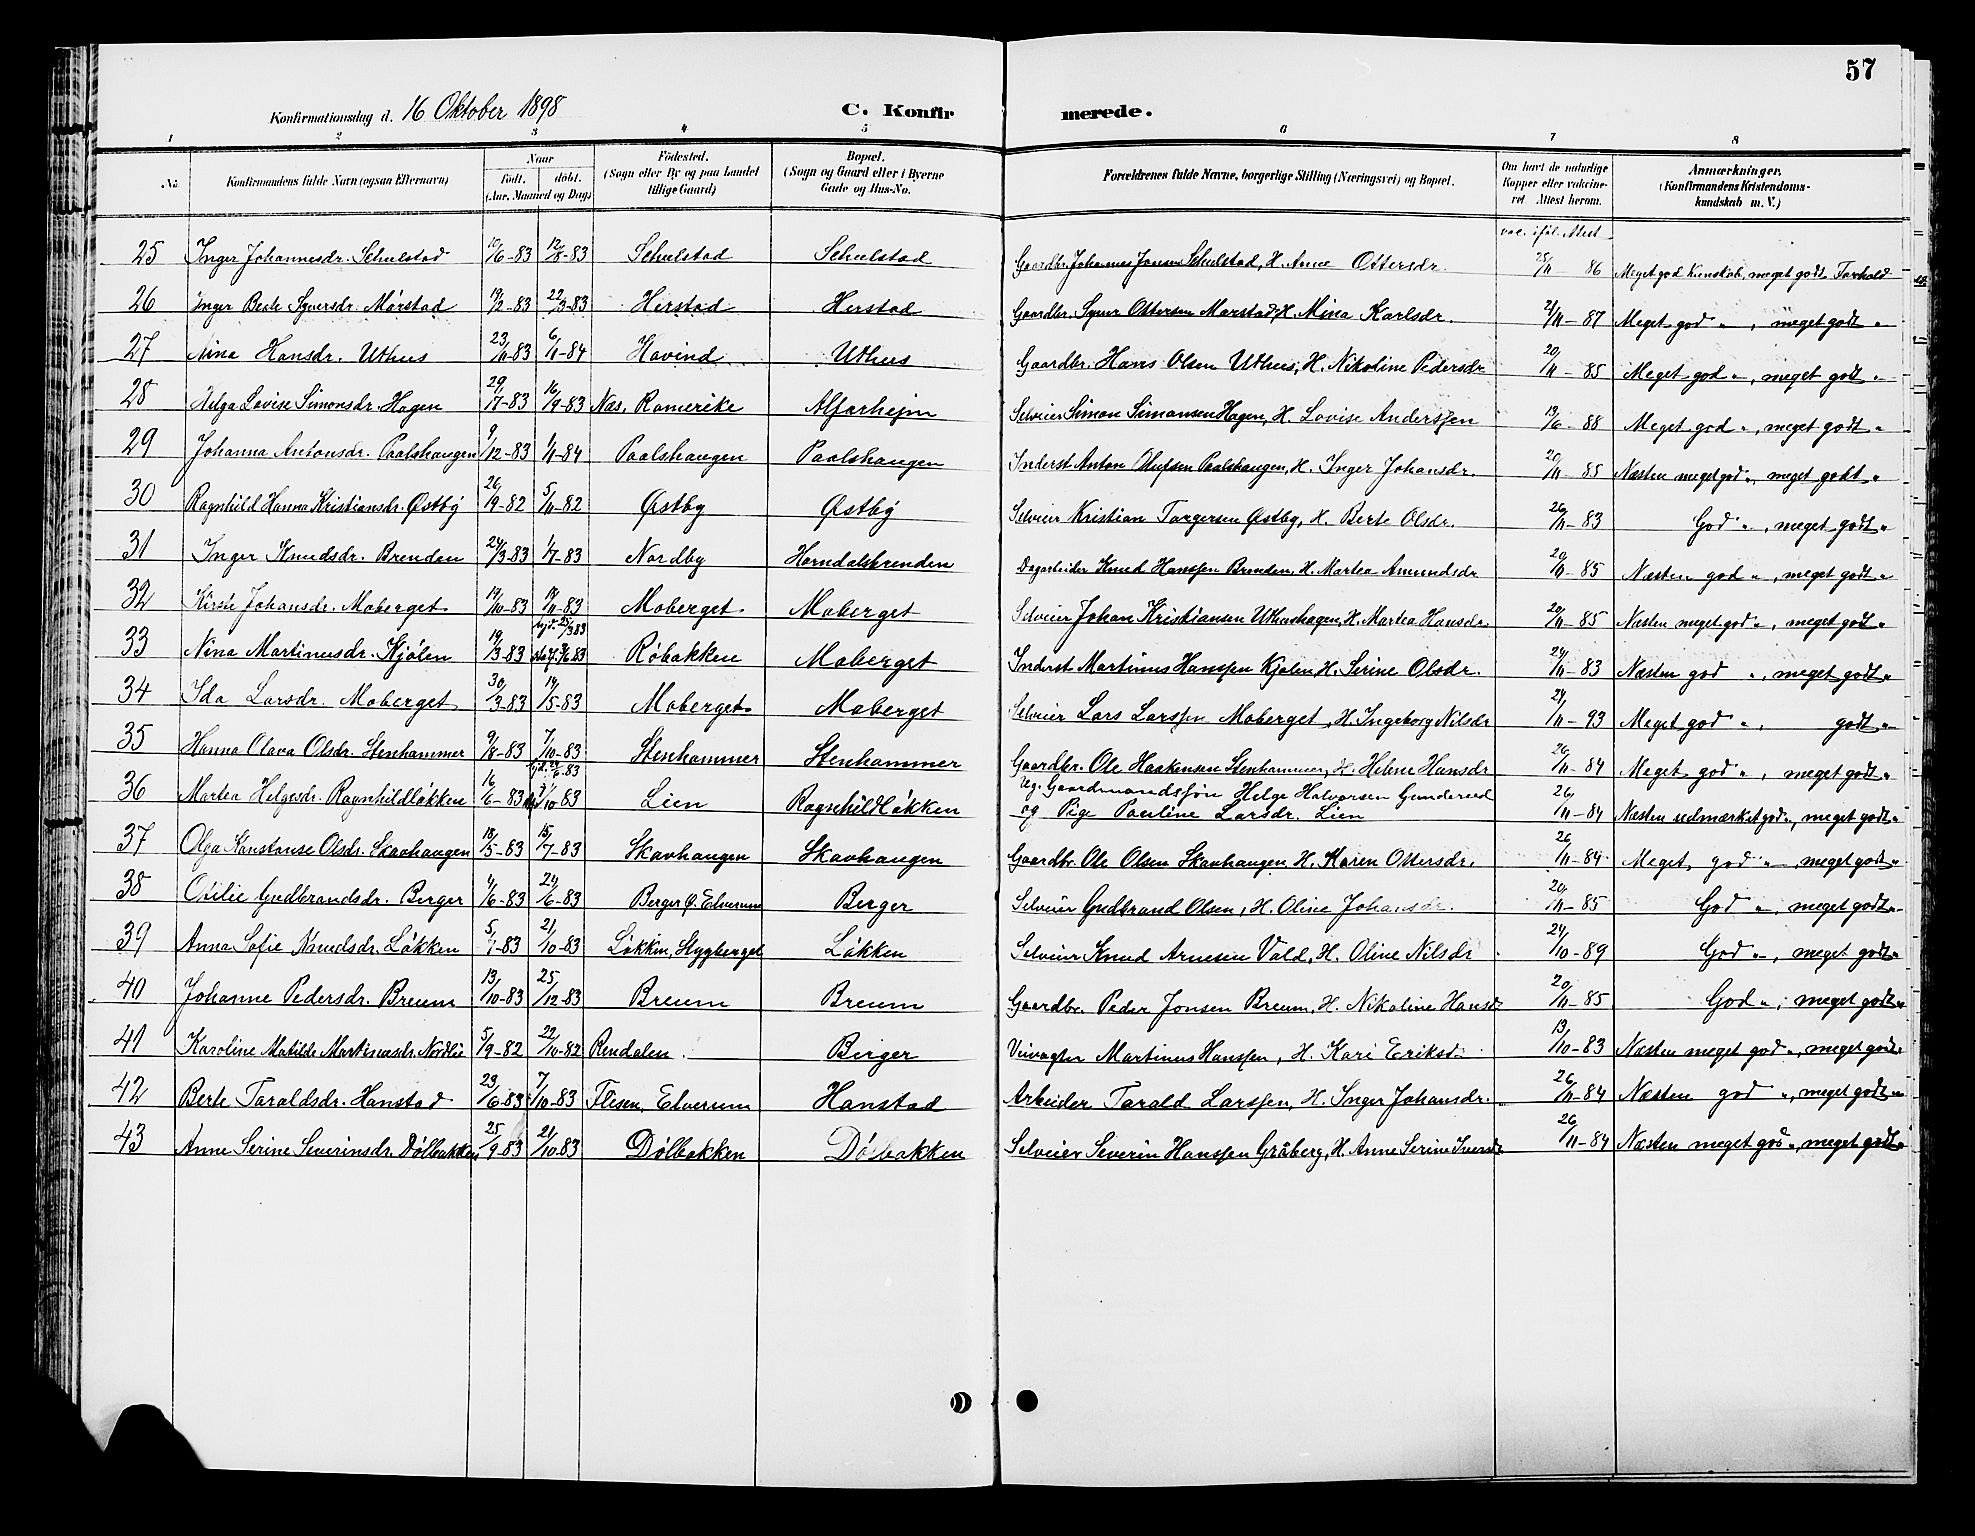 57
Konfirmationsdag d. 16 Oktober 1898 C. Konfir merede.
1 2 3 4 5 6 7 8
No. Konfirmandens fulde Navn (ogsaa Efternavn) Naar født. døbt. (Aar, Maaned og Dag) Fødested. (Sogn eller By og paa Landet tillige Gaard) Bopæl. (Sogn og Gaard eller i Byerne Gade og Hus-No. Forældrenes fulde Navne, borgerlige Stilling (Næringsvei) og Bopæl. Om havt de naturlige Kopper eller vaccineret. Attest herom. Anmærkninger. (Konfirmandens Kristendomskundskab m. V.)
vac. iføl. Attest
25 Inger Johannesdr. Schulstad 10/6-83 12/8-83 Schulstad Schulstad Gaardbr. Johannes Jonsen Schulstad, H. Anne Ottersdr. 25/11 86 Meget god Kunskab, meget godt Forhold
26 Inger Berte Syversdr. Mørstad 19/2-83 22/3-83 Herstad Herstad Gaardbr. Syver Ottersen Mørstad, H. Mina Karlsdr. 21/11-87 Meget god ", meget godt "
27 Nina Hansdr. Uthus 23/11-83 6/1-84 Havind Uthus Gaardbr. Hans Olsen Uthus, H. Nikoline Pedersdr 20/11-85 Meget god ", meget godt "
28 Helga Lovise Simonsdr. Hagen 29/7-83 16/9-83 Næs, Romerike Alfarhejm Selveier Simon Simonsen Hagen, H. Lovise Anderssen 13/6-88 Meget god ", meget godt "
29 Johanna Antonsdr. Paalshaugen 9/12-83 1/1-84 Paalshaugen Paalshaugen Inderst Anton Olufsen Paalshaugen, H. Inger Johansdr. 20/11-85 Næsten meget god ", meget godt "
30 Ragnhild Hanna Kristiansdr. Østby 26/9-82 5/11-82 Østby Østby Selveier Kristian Torgersen Østby, H. Berte Olsdr. 26/11-83 God ", meget godt "
31 Inger Knudsdr. Brenden 24/3-83 1/7-83 Nordby Horndalsbrenden Dagarbeider Knud Hanssen Brenden, H. Martea Amundsdr 20/11-85 Næsten god ", meget godt "
32 Kirste Johansdr. Moberget 19/10-83 18/11-83 Moberget Moberget Selveier Johan Kristiansen Uthushagen, H. Martea Hansdr. 20/11-85 Næsten meget god ", meget godt "
33 Nina Martinusdr. Kjølen 19/3-83 Røbakken Moberget Inderst Martinus Hanssen Kjølen, H. Serine Olsdr. 24/11-83 Næsten god ", meget godt "
34 Ida Larsdr. Moberget 30/3-83 14/5-83 Moberget Moberget Selveier Lars Larssen Moberget, H. Ingeborg Nilsdr 24/11-93 Meget god ", godt "
35 Hanna Olava Olsdr. Stenhammer 9/8-83 7/10-83 Stenhammer Stenhammer Gaardbr. Ole Haakensen Stenhammer, H. Helene Hansdr 26/11-84 Meget god ", meget godt "
36 Martea Helgesdr. Ragnhildløkken 16/6-83 Lien Ragnhildløkken Ug. Gaardmandssøn Helge Halvorsen Gundersed
og Pige Pauline Larsdr. Lien 26/11-84 Næsten udmærket god ", meget godt "
37 Olga Konstanse Olsdr. Skavhaugen 18/5-83 15/7-83 Skavhaugen Skavhaugen Gaardbr. Ole Olsen Skavhaugen, H. Karen Ottersdr. 26/11-84 Meget god ", meget godt "
38 Otilie Gudbrandsdr. Berger 4/6-83 24/6-83 Berger Ø. Elverum Berger Selveier Gudbrand Olsen, H. Oline Johansdr. 20/11-85 God ", meget godt "
39 Anna Sofie Knudsdr. Løkken 5/7-83 21/10-83 Løkken, Hygberget Løkken Selveier Knud Arnesen Vold, H. Oline Nilsdr 24/10-89 God ", meget godt "
40 Johanne Pedersdr. Breum 13/10-83 25/12-83 Breum Breum Gaardbr. Peder Jonsen Breum, H. Nikoline Hansd 20/11-85 God ", meget godt "
41 Karoline Matilde Martinusdr. Nordlie 5/9-82 22/10-82 Rendalen Berger Veivogter Martinus Hanssen, H. Kari Eriksd 13/10-83 Næsten meget god ", meget godt "
42 Berte Taraldsdr. Hanstad 23/6-83 7/10-83 Flisen, Elverum Hanstad Arbeider Tarald Larssen, H. Inger Johansdr. 26/11-84 Næsten god ", meget godt "
43 Anne Serine Severinsdr. Dølbakken 25/9-83 21/10-83 Dølbakken Dølbakken Selveier Severin Hanssen Gråberg, H. Anne Serine Iversd 26/11-84 Næsten meget god ", meget godt "